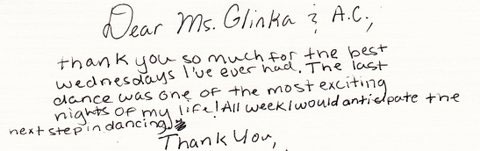 Dear Ms. Glinka & A.C.,
thank you so much for the best
wednesdays I've ever had. The last
dance was one of the most exciting
nights of my life! All week I would anticipate the
next step in dancing.
Thank You,